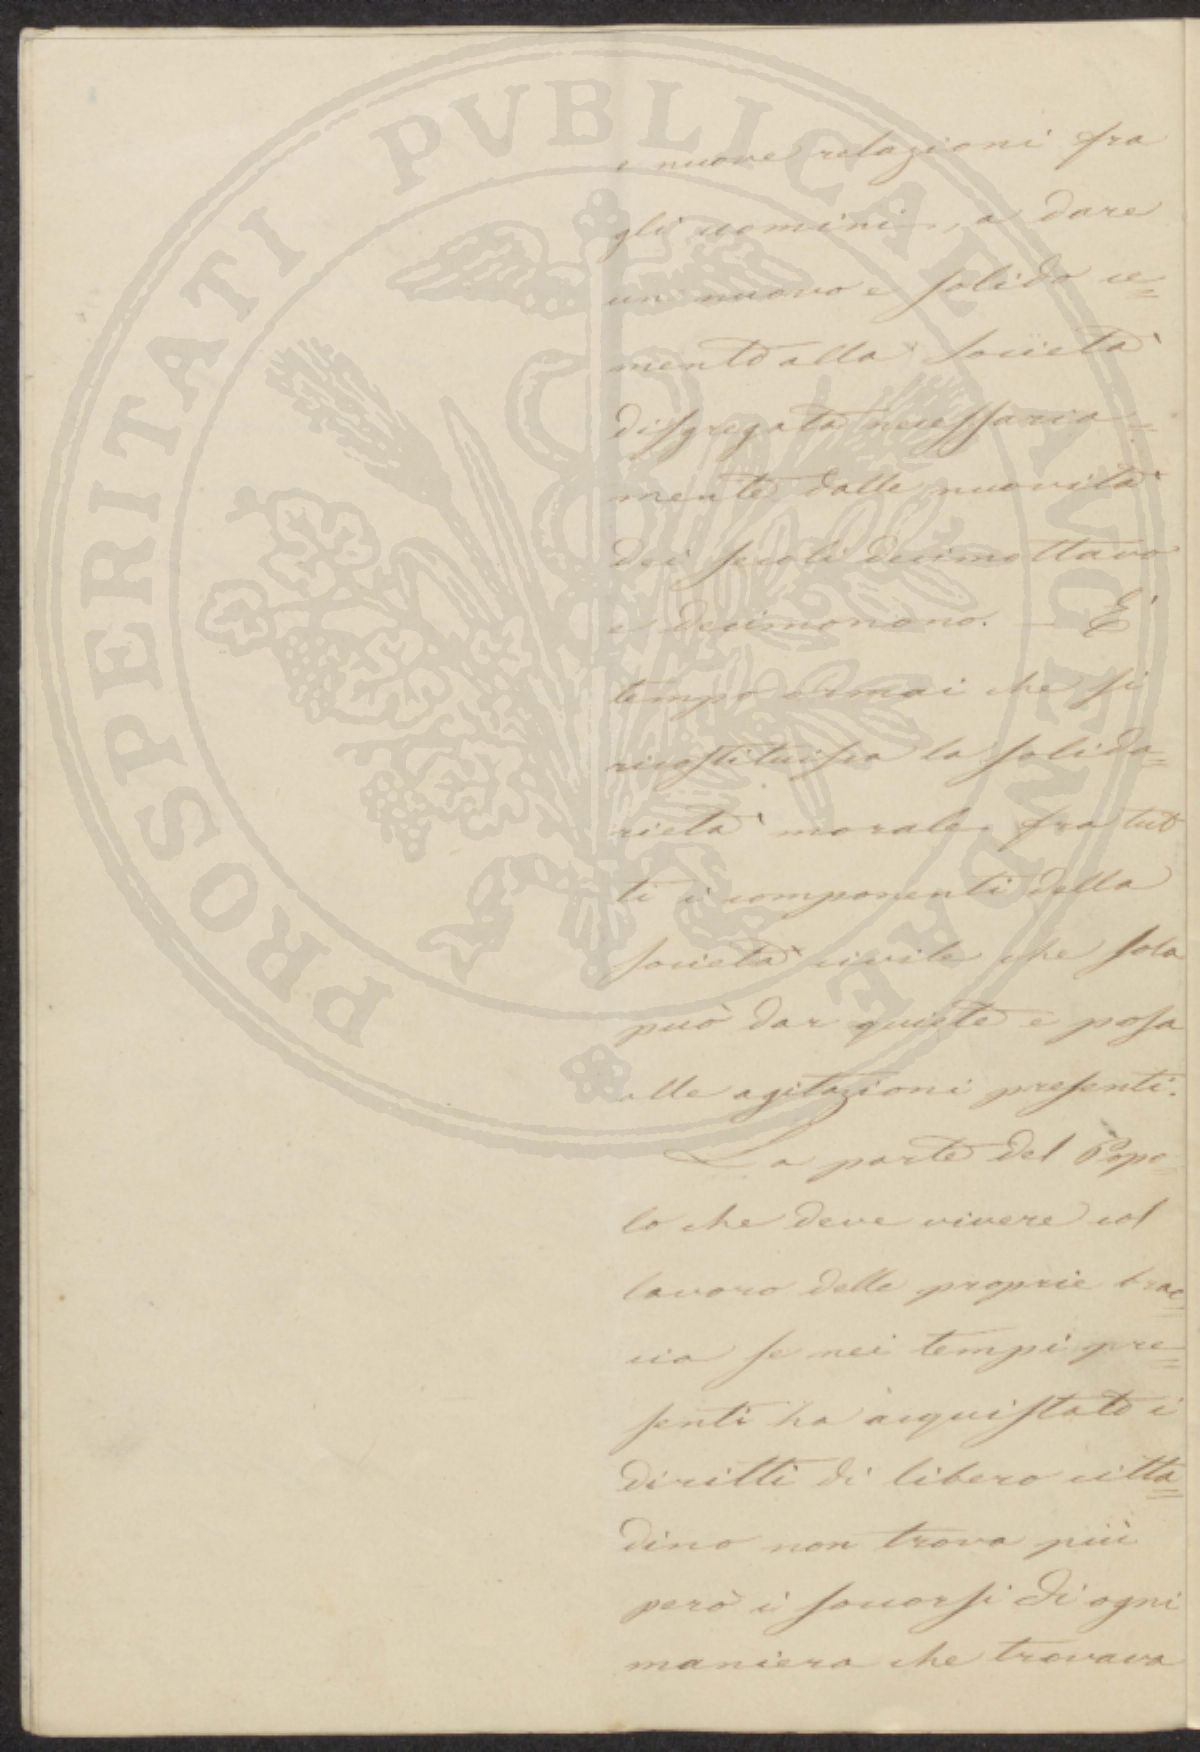 PROSPERITATI PVBLICAE AVGENDAE
e nuove relazioni fra
gli uomini, a dare
un nuovo e solido ce=
mento alla società
disgregata necessaria=
mente dalle nuovità
dei secoli decimottavo
e decimonono. — È
tempo ormai che si
ricostituisca la solida=
rietà morale fra tut
ti i componenti della
società civile che sola
può dar quiete e posa
alle agitazioni presenti.
La parte del Popo=
lo che deve vivere col
lavoro delle proprie brac=
cia se nei tempi pre=
senti ha acquistato i
diritti di libero citta=
dino non trova più
però i soccorsi di ogni
maniera che trovava